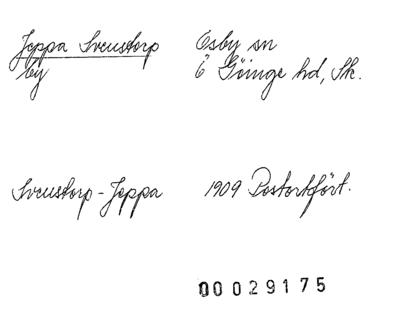 Jeppa Svenstorp Osby sn
by Ö Göinge hd, Sk.
Svenstorp-Jeppa 1909 Postortfört.
00029175